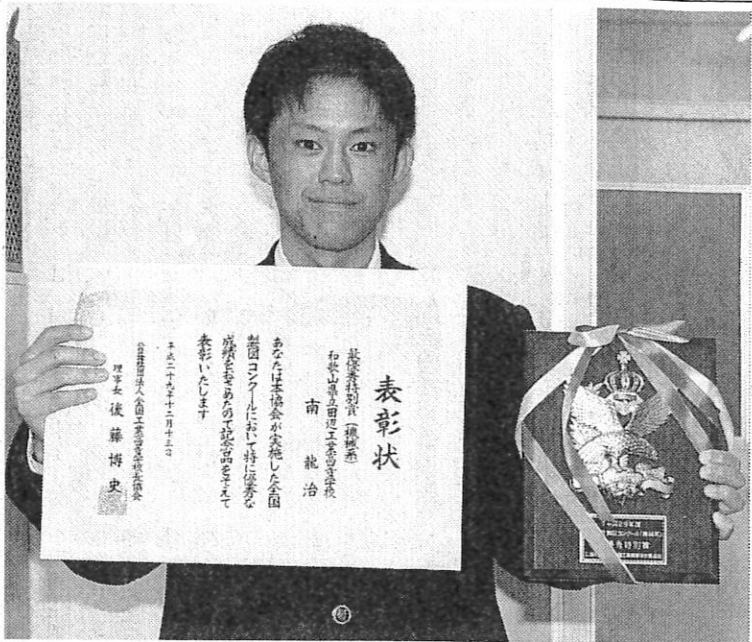 表彰状
最優秀特別賞(機械系)
和歌山県立田辺工業高等学校
南 龍治
あなたは本協会が実施した全国
製図コンクールにおいて特に優秀な
成績をおさめたので記念品をそえて
表彰いたします
平成二十九年十二月十三日
公益社団法人全国工業高等学校長協会
理事長 後藤博史
平成29年度
特別賞